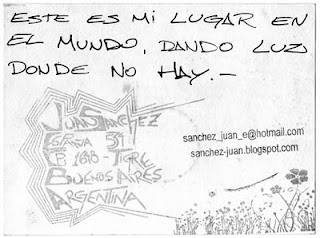 ESTE ES MI LUGAR EN
EL MUNDO, DANDO LUZ
DONDE NO HAY.-
JUAN SANCHEZ
ESPAÑA 51
CP 1648 - TIGRE
BUENOS AIRES
ARGENTINA
sanchez_juan_e@hotmail.com
sanchez-juan.blogspot.com